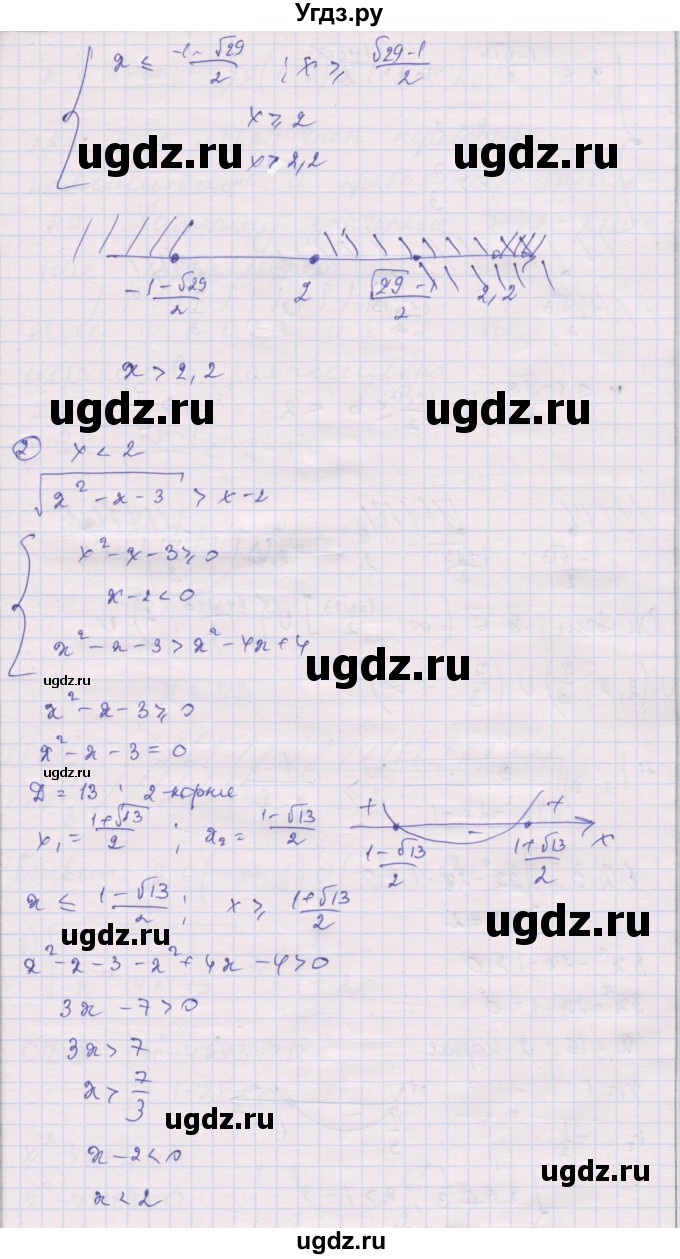 Угдз.ру
x ≤ (-1-√29)/2 ; x ≥ (√29-1)/2
x ≥ 2
ugdz.ru ugdz.ru
x > 2,2
(-1-√29)/2 2 (√29-1)/2 2,2
x > 2,2
ugdz.ru ugdz.ru
② x < 2
√(x²-x-3) > x-2
x²-x-3 ≥ 0
x-2 < 0
x²-x-3 > x²-4x+4
ugdz.ru
ugdz.ru
x²-x-3 ≥ 0
x²-x-3 = 0
ugdz.ru
D = 13 ; 2 корня
+ - + x
x₁ = (1+√13)/2 ; x₂ = (1-√13)/2
(1-√13)/2 (1+√13)/2
x ≤ (1-√13)/2 ; x ≥ (1+√13)/2
ugdz.ru
ugdz.ru
x²-x-3-x²+4x-4>0
3x-7>0
3x>7
x > 7/3
ugdz.ru
x-2<0
ugdz.ru
x<2
ugdz.ru